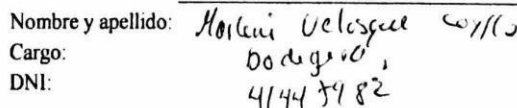 Nombre y apellido: Marleni Velasque
Cargo: Bodegero,
DNI: 41447982